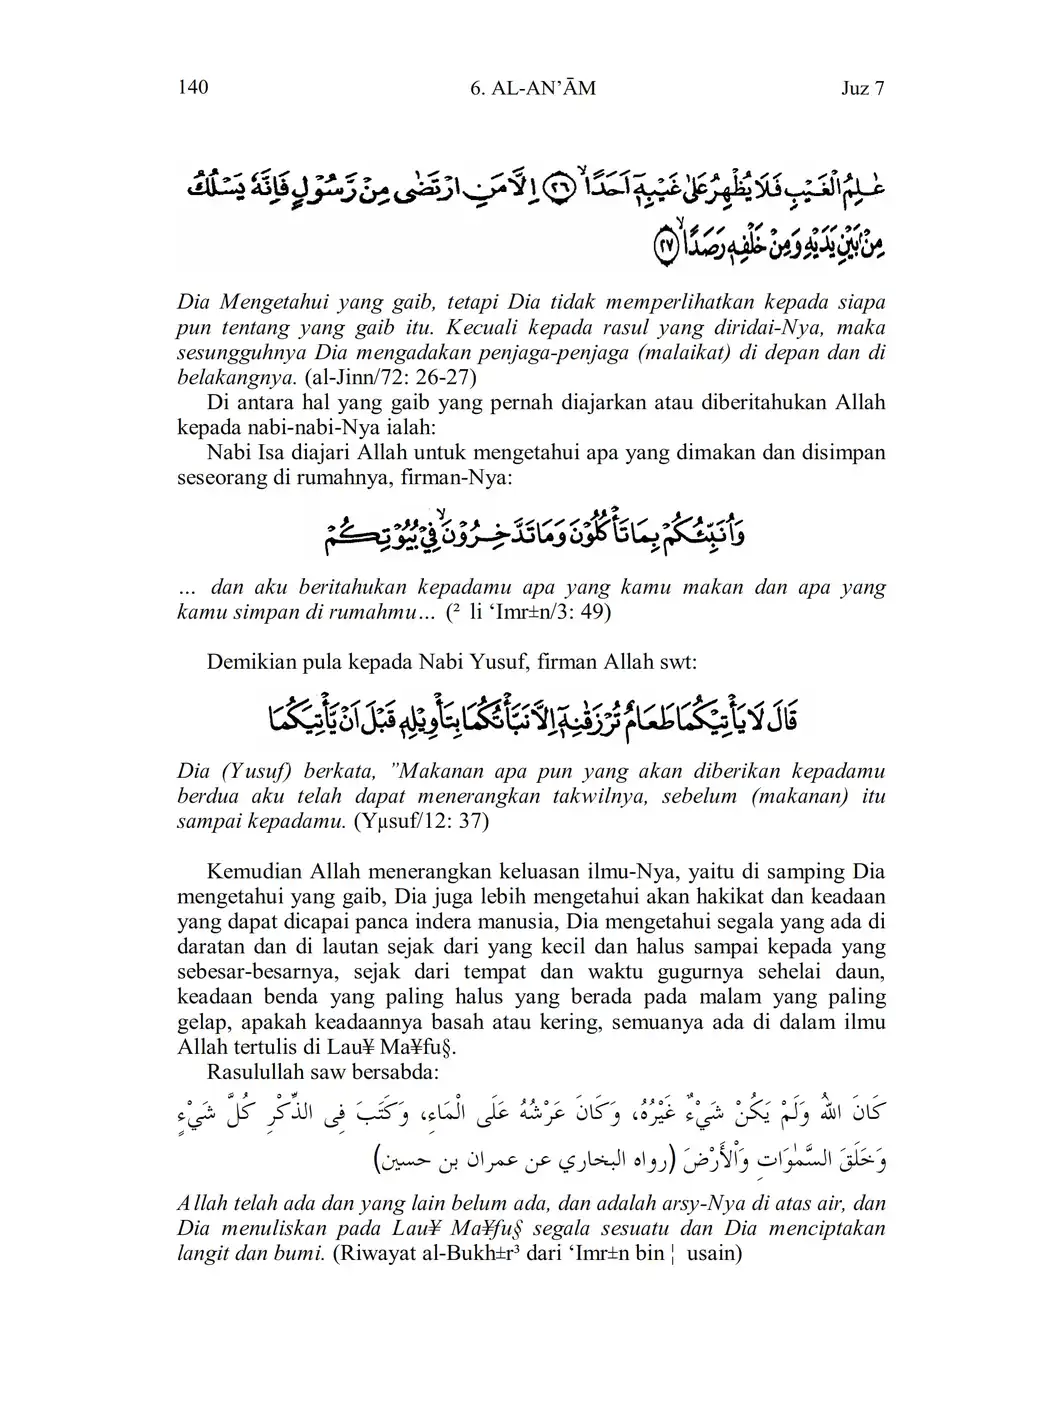 140 6. AL-AN’ĀM Juz 7
عٰلِمُ الْغَيْبِ فَلَا يُظْهِرُ عَلٰى غَيْبِهٖٓ اَحَدًاۙ ﴿٢٦﴾ اِلَّا مَنِ ارْتَضٰى مِنْ رَّسُوْلٍ فَاِنَّهٗ يَسْلُكُ
مِنْۢ بَيْنِ يَدَيْهِ وَمِنْ خَلْفِهٖ رَصَدًاۙ ﴿٢٧﴾
Dia Mengetahui yang gaib, tetapi Dia tidak memperlihatkan kepada siapa
pun tentang yang gaib itu. Kecuali kepada rasul yang diridai-Nya, maka
sesungguhnya Dia mengadakan penjaga-penjaga (malaikat) di depan dan di
belakangnya. (al-Jinn/72: 26-27)
Di antara hal yang gaib yang pernah diajarkan atau diberitahukan Allah
kepada nabi-nabi-Nya ialah:
Nabi Isa diajari Allah untuk mengetahui apa yang dimakan dan disimpan
seseorang di rumahnya, firman-Nya:
وَاُنَبِّئُكُمْ بِمَا تَأْكُلُوْنَ وَمَا تَدَّخِرُوْنَۙ فِيْ بُيُوْتِكُمْ
… dan aku beritahukan kepadamu apa yang kamu makan dan apa yang
kamu simpan di rumahmu… (² li ‘Imr±n/3: 49)
Demikian pula kepada Nabi Yusuf, firman Allah swt:
قَالَ لَا يَأْتِيْكُمَا طَعَامٌ تُرْزَقٰنِهٖٓ اِلَّا نَبَّأْتُكُمَا بِتَأْوِيْلِهٖ قَبْلَ اَنْ يَّأْتِيَكُمَا
Dia (Yusuf) berkata, ”Makanan apa pun yang akan diberikan kepadamu
berdua aku telah dapat menerangkan takwilnya, sebelum (makanan) itu
sampai kepadamu. (Yµsuf/12: 37)
Kemudian Allah menerangkan keluasan ilmu-Nya, yaitu di samping Dia
mengetahui yang gaib, Dia juga lebih mengetahui akan hakikat dan keadaan
yang dapat dicapai panca indera manusia, Dia mengetahui segala yang ada di
daratan dan di lautan sejak dari yang kecil dan halus sampai kepada yang
sebesar-besarnya, sejak dari tempat dan waktu gugurnya sehelai daun,
keadaan benda yang paling halus yang berada pada malam yang paling
gelap, apakah keadaannya basah atau kering, semuanya ada di dalam ilmu
Allah tertulis di Lau¥ Ma¥fu§.
Rasulullah saw bersabda:
كَانَ اللهُ وَلَمْ يَكُنْ شَيْءٌ غَيْرُهُ، وَكَانَ عَرْشُهُ عَلَى الْمَاءِ، وَكَتَبَ فِى الذِّكْرِ كُلَّ شَيْءٍ
وَخَلَقَ السَّمٰوَاتِ وَاْلأَرْضَ (رواه البخاري عن عمران بن حسين)
Allah telah ada dan yang lain belum ada, dan adalah arsy-Nya di atas air, dan
Dia menuliskan pada Lau¥ Ma¥fu§ segala sesuatu dan Dia menciptakan
langit dan bumi. (Riwayat al-Bukh±r³ dari ‘Imr±n bin ¦ usain)